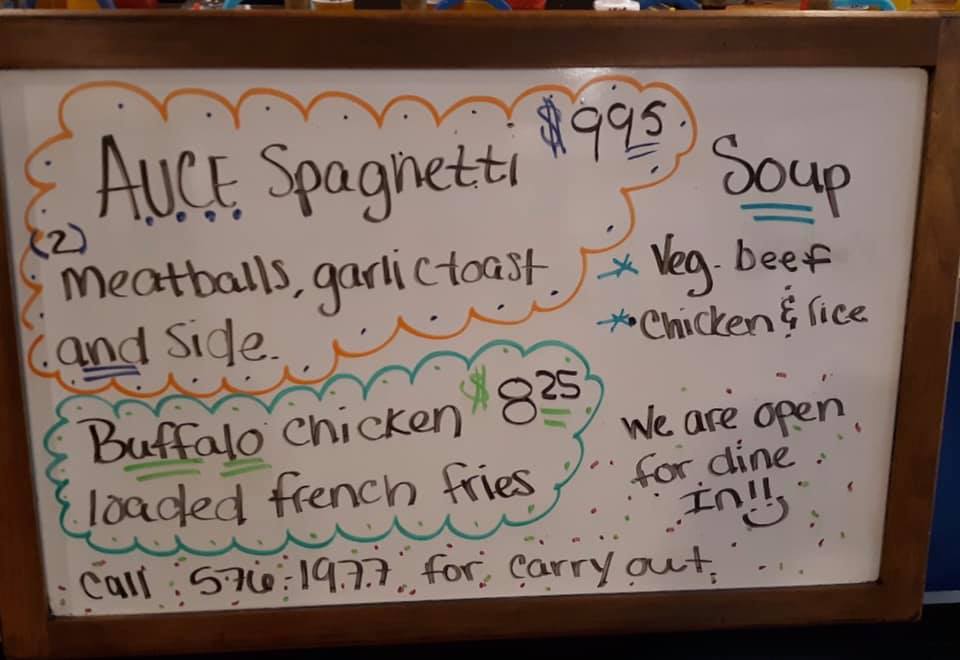 AUCE Spaghetti $9.95
(2)
meatballs, garlic toast
and side.
Buffalo chicken $8.25
loaded french fries
Soup
* Veg. beef
* Chicken & rice
We are open
for dine
In!!
Call 576-1977 for carry out.